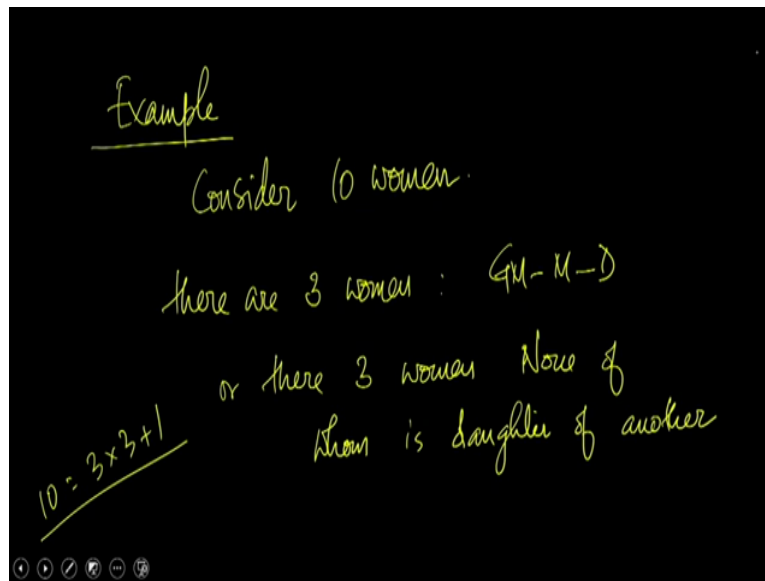 Example
Consider 10 women.
there are 3 women : GM - M - D
or there 3 women None of
whom is daughter of another
10 = 3 × 3 + 1